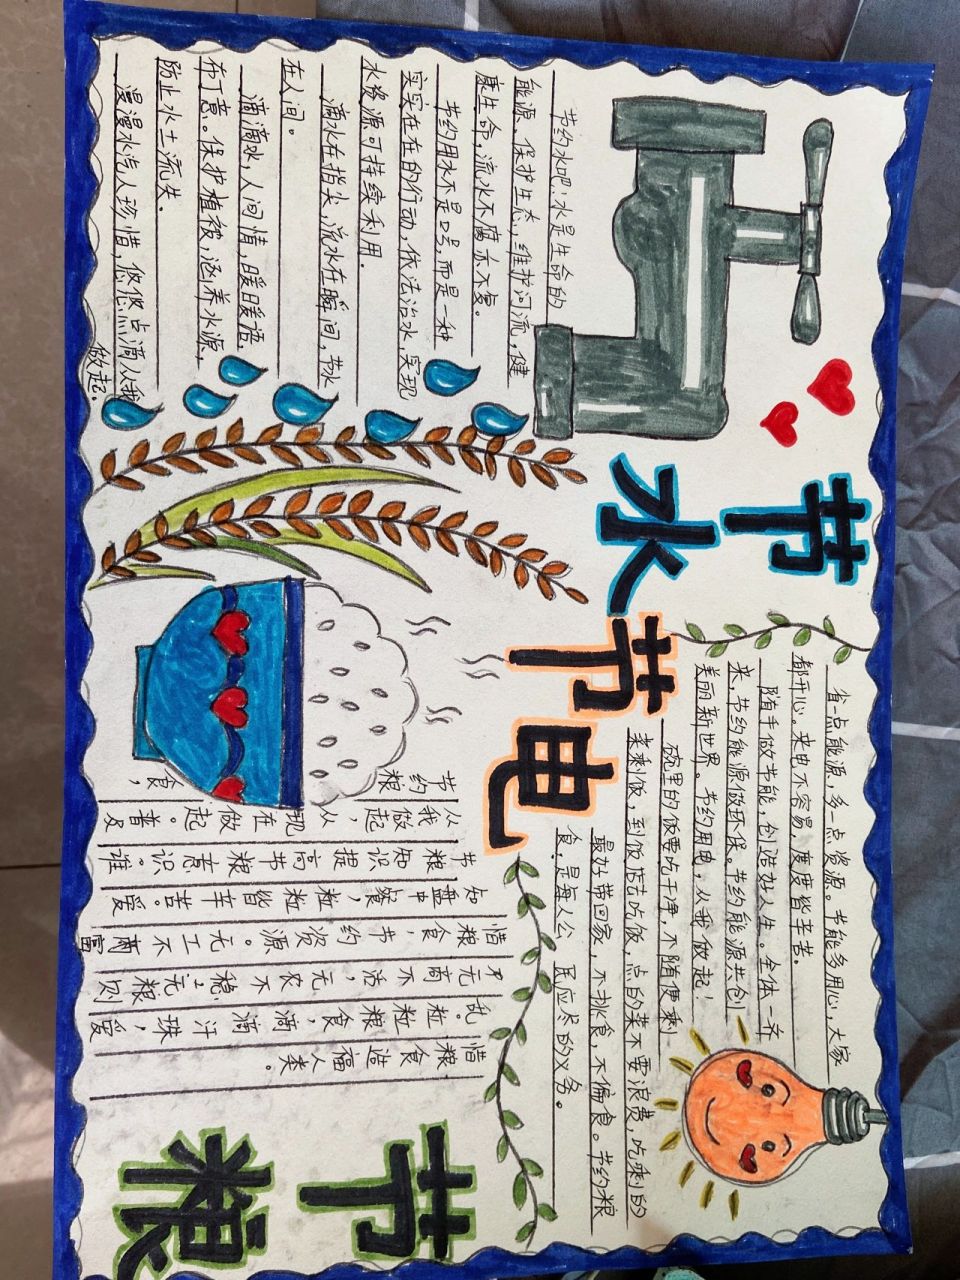 节水
节电
节粮
节约水吧!水是生命的
能源。保护生态,维护河流,健
康生命,流水不腐亦不复。
节约用水不是口号,而是一种
实实在在的行动,依法治水,实现
水资源可持续利用.
滴水在指尖,流水在瞬间,节水
在人间。
滴滴水,人间情,暖暖语,
布丁意。保护植被,涵养水源,
防止水土流失.
漫漫水汽人珍惜,悠悠点滴从我
做起.
省一点能源,多一点资源。节能多用心,大家
都开心。来电不容易,度度皆辛苦.
随手做节能,创造好人生。全体一齐
来,节约能源做环保。节约能源共创
美丽新世界。节约用电,从我做起!
碗里的饭要吃干净,不随便剩
菜剩饭,到饭店去吃饭,点的菜不要浪费,吃剩的
最好带回家,不挑食,不偏食。节约粮
食,是每人公民应尽的义务。
节约粮食,
从我做起,从现在做起。普及
节粮知识提高节粮意识。谁
知盘中餐,粒粒皆辛苦。爱
惜粮食,节约资源。无工不富
无商不活,无农不稳,无粮则
乱。粒粒粮食,滴滴汗珠,爱
惜粮食造福人类。